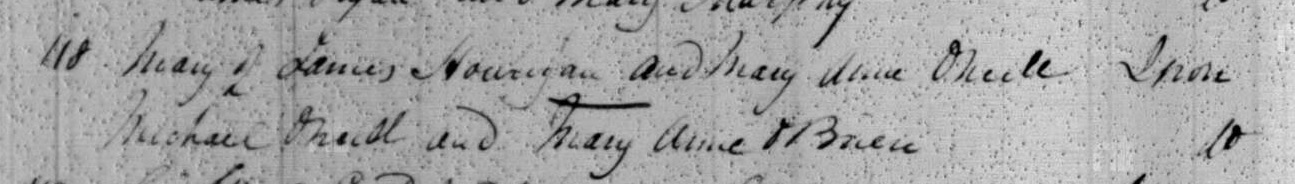 and Mary Murphy
118 Mary of James Hourigan and Mary Anne ONeill
Michael ONeill and Mary Anne OBrien do